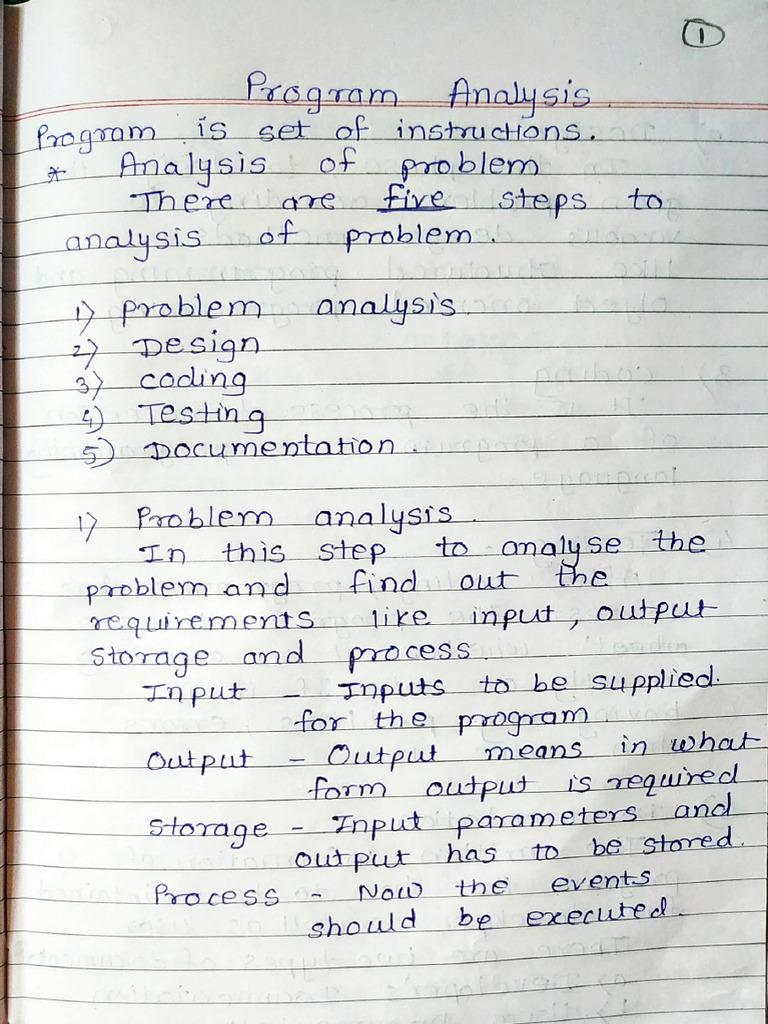 1
Program Analysis.
Program is set of instructions.
* Analysis of problem
There are five steps to
analysis of problem.
1) problem analysis.
2) Design
3) coding
4) Testing
5) Documentation.
1) Problem analysis.
In this step to analyse the
problem and find out the
requirements like input, output
storage and process.
Input - Inputs to be supplied.
for the program.
Output - Output means in what
form output is required
Storage - Input parameters and
output has to be stored.
Process - Now the events
should be executed.